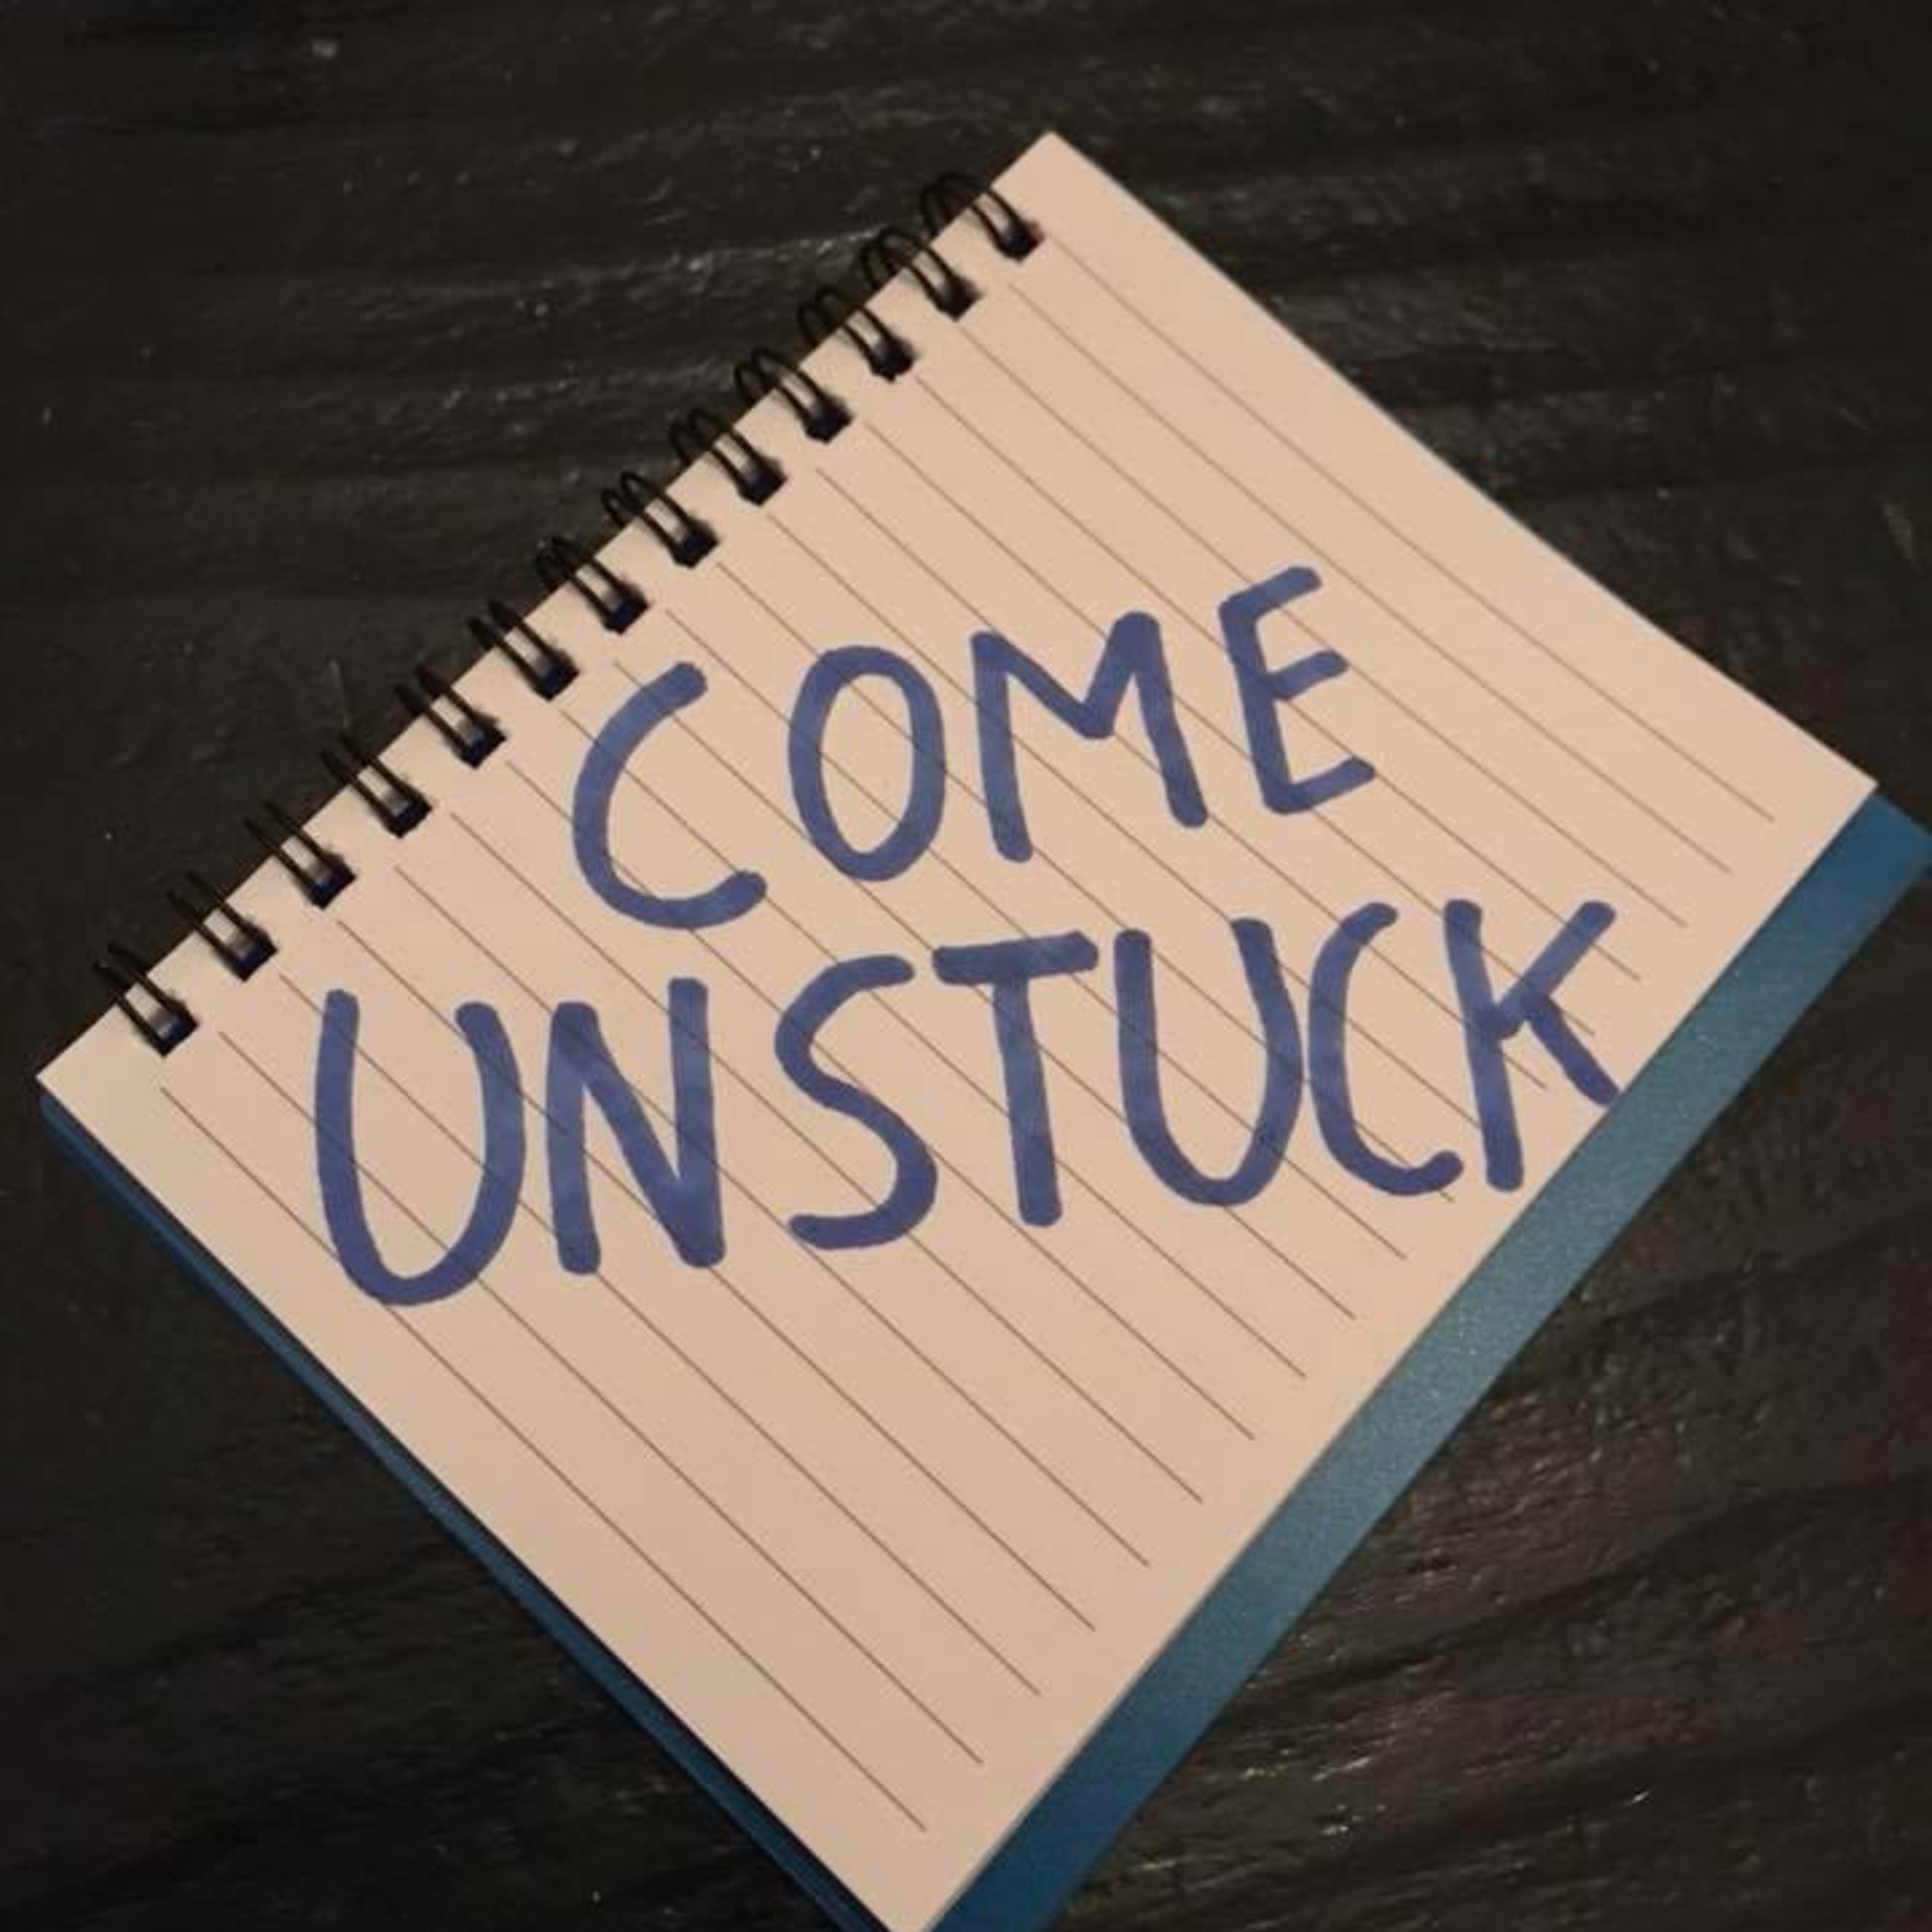 COME
UNSTUCK